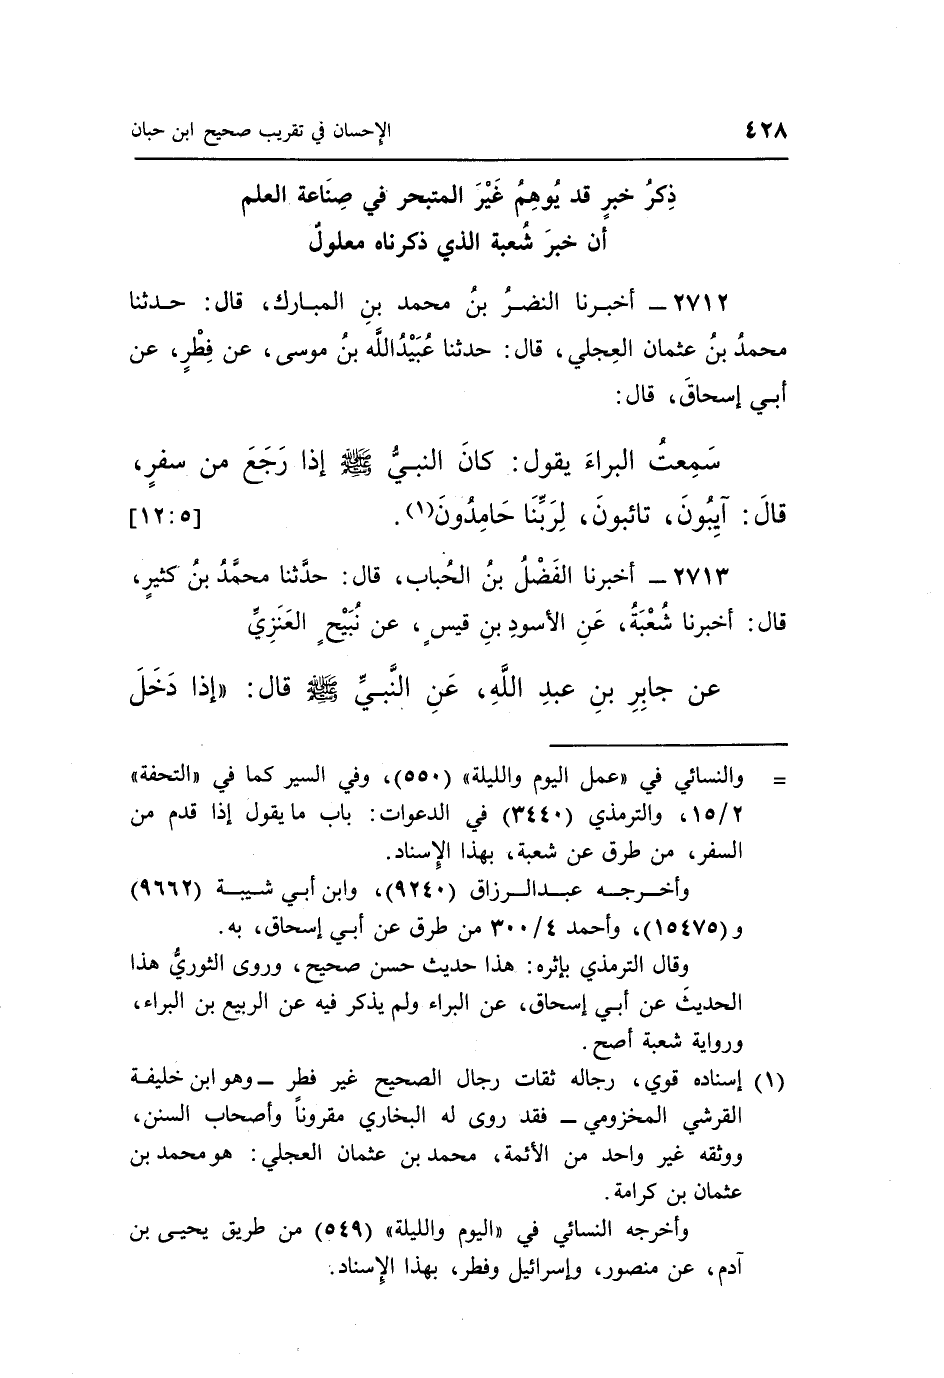 ٤٢٨ الإحسان في تقريب صحيح ابن حبان
ذِكرُ خبرٍ قد يُوهِمُ غَيْرَ المتبحر في صِنَاعة العلم
أن خبرَ شُعبة الذي ذكرناه معلولٌ
٢٧١٢ ـ أخبرنا النضرُ بنُ محمد بنِ المبارك، قال: حدثنا
محمدُ بنُ عثمان العِجلي، قال: حدثنا عُبَيْدُالله بنُ موسى، عن فِطْرٍ، عن
أبي إسحاقَ، قال:
سَمِعتُ البراءَ يقول: كانَ النبيُّ ﷺ إذا رَجَعَ من سفرٍ،
قالَ: آيِبُونَ، تائبونَ، لِرَبِّنَا حَامِدُونَ(١). [١٢:٥]
٢٧١٣ ـ أخبرنا الفَضْلُ بنُ الحُباب، قال: حدَّثنا محمَّدُ بنُ كثيرٍ،
قال: أخبرنا شُعْبَةُ، عَنِ الأسودِ بنِ قيسٍ، عن نُبَيْحٍ العَنَزِيِّ
عن جابِرِ بنِ عبدِ اللَّهِ، عَنِ النَّبيِّ ﷺ قال: «إذا دَخَلَ
= والنسائي في «عمل اليوم والليلة» (٥٥٠)، وفي السير كما في «التحفة»
١٥/٢، والترمذي (٣٤٤٠) في الدعوات: باب ما يقول إذا قدم من
السفر، من طرق عن شعبة، بهذا الإسناد.
وأخرجه عبدالرزاق (٩٢٤٠)، وابن أبي شيبة (٩٦٦٢)
و(١٥٤٧٥)، وأحمد ٣٠٠/٤ من طرق عن أبي إسحاق، به.
وقال الترمذي بإثره: هذا حديث حسن صحيح، وروى الثوريُّ هذا
الحديثَ عن أبي إسحاق، عن البراء ولم يذكر فيه عن الربيع بن البراء،
ورواية شعبة أصح.
(١) إسناده قوي، رجاله ثقات رجال الصحيح غير فطر ـ وهو ابن خليفة
القرشي المخزومي ـ فقد روى له البخاري مقروناً وأصحاب السنن،
ووثقه غير واحد من الأئمة، محمد بن عثمان العجلي: هو محمد بن
عثمان بن كرامة.
وأخرجه النسائي في «اليوم والليلة» (٥٤٩) من طريق يحيى بن
آدم، عن منصور، وإسرائيل وفطر، بهذا الإسناد.